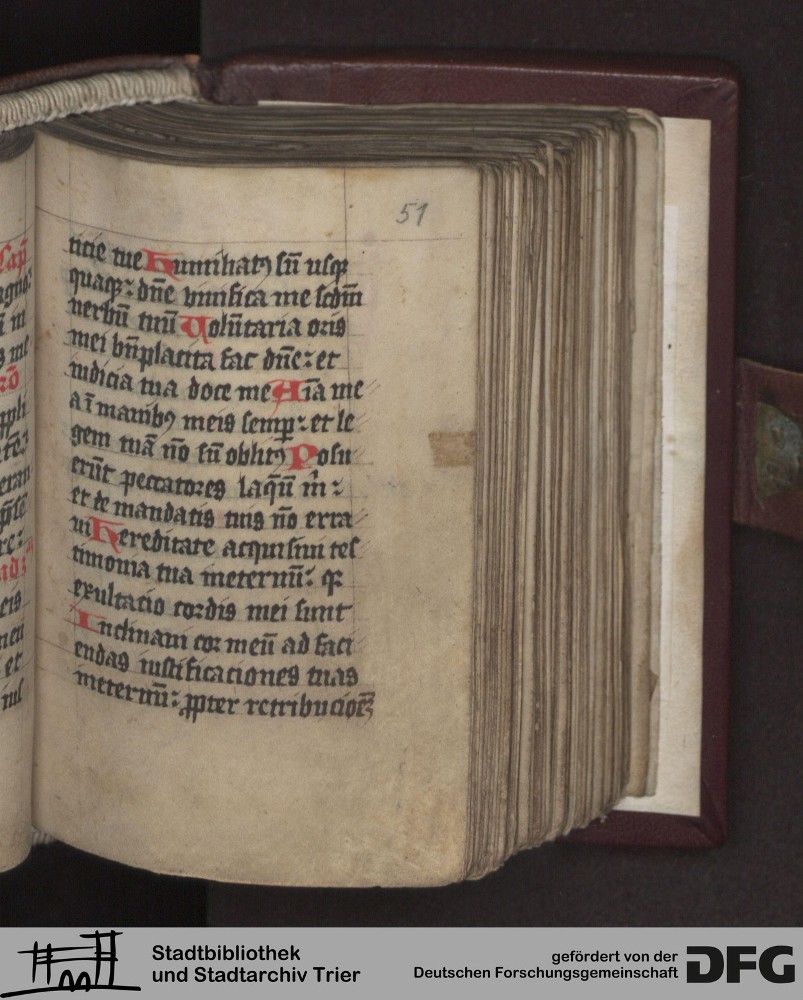 51
ticie tue Humiliatꝰ sū usqꝫ
quaqꝫ: dn̄e viuifica me scd̄m
uerbū tuū Volūtaria oris
mei bn̄placita fac dn̄e: et
iudicia tua doce me Aīa me
a ī manibꝰ meis semꝑ: et le
gem tuā nō sū oblitꝰ Posu
erūt peccatores laq̄ū m̄:
et de mandatis tuis nō erra
ui Hereditate acquisiui tes
timonia tua ineternū: qꝫ
exultatio cordis mei sunt
Inclinaui cor meū ad faci
endas iustificaciones tuas
ineternū: ꝓpter retribucioēꝫ
Stadtbibliothek
und Stadtarchiv Trier
gefördert von der
Deutschen Forschungsgemeinschaft
DFG